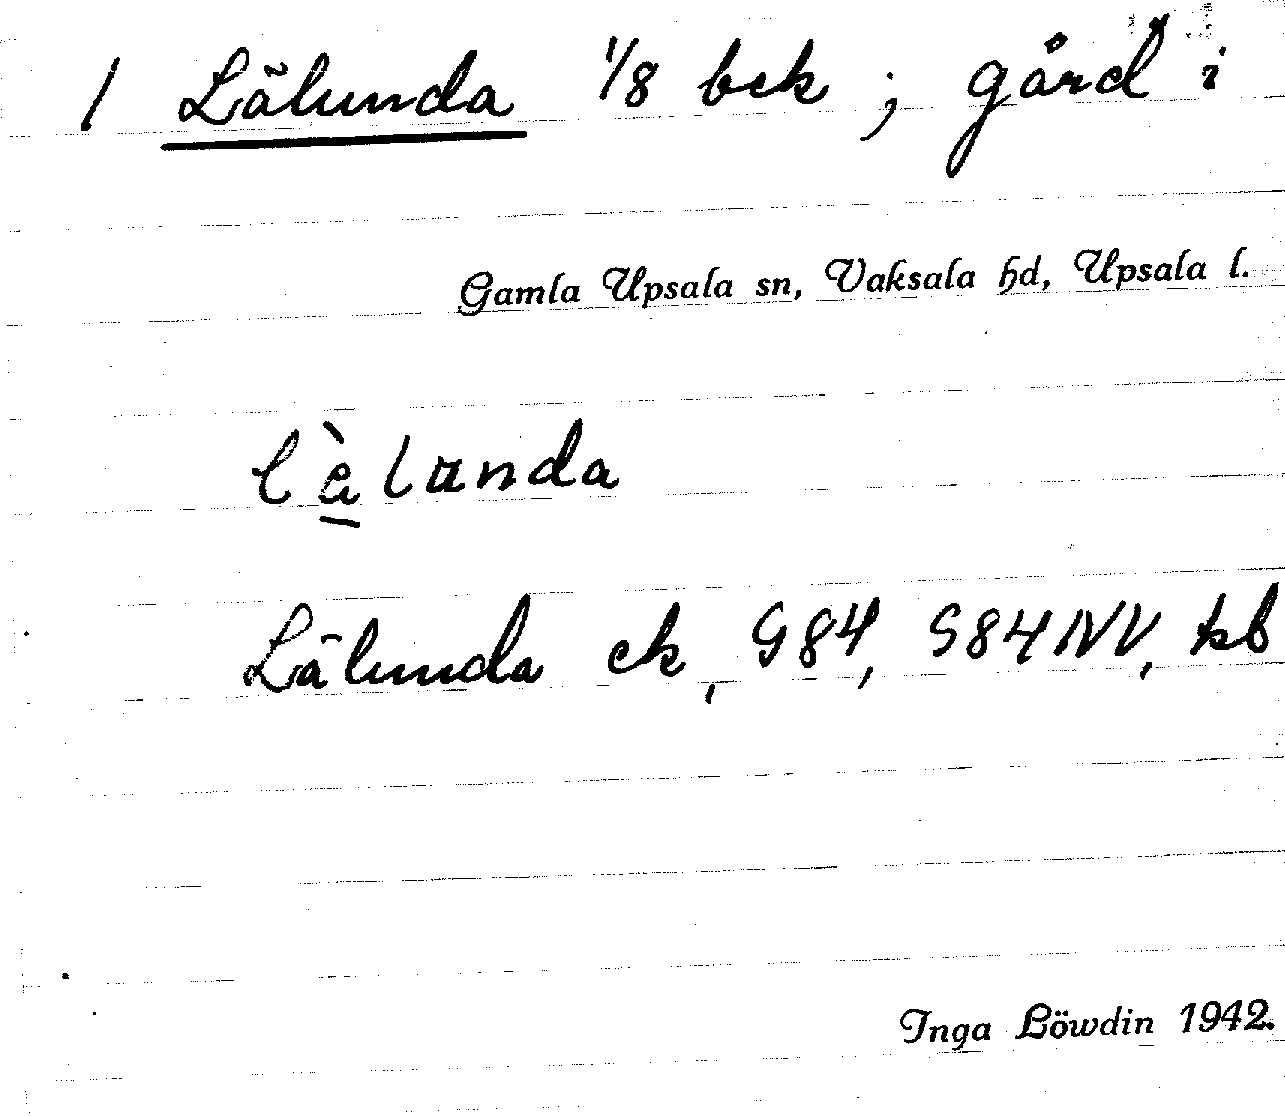 1 Lälunda 1/8 bek ; gård i
Gamla Upsala sn, Vaksala hd, Upsala l.
là̱lunda
Lälunda ek, G84, S84NV, kb
Inga Löwdin 1942.